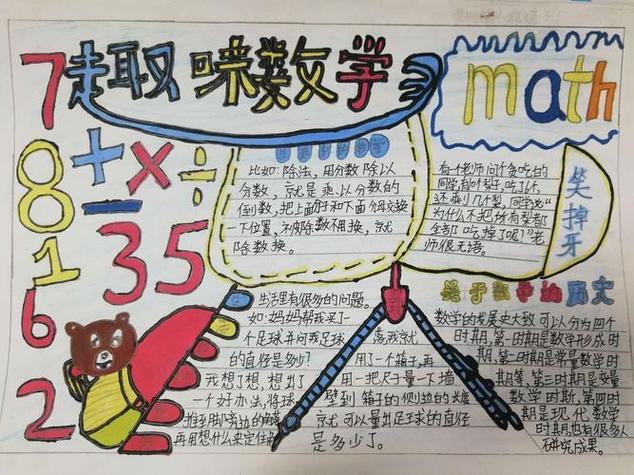 趣味数学
math
7
8
1
6
2
+ × ÷
−
35
比如:除法,用分数除以
分数,就是乘以分数的
倒数,把上面的和下面的交换
一下位置,被除数不用换,就
除数换。
有一个老师问个贪吃的
同学,有叶梨子,吃了几个,
还剩几个梨,同学说“
为什么不把所有梨都
全部吃掉了呢?”老
师很无语。
笑掉牙
关于数学的历史
生活里有很多的问题。
如:妈妈帮我买一
个足球并问我足球
的直径是多少?
我想了想,想出了
一个好办法,将球
再用想什么来定住
用了一个箱子,再
用一把尺子量一下墙
壁到箱子的侧边的长度
就可以量出足球的直径
是多少了。
数学的发展史大致可以分为四个
时期,第一时期是数学形成时
期,第二时期是常量数学时
期等,第三时期是变量
数学时期,第四时
期是现代数学
时期,也有很多人
研究成果。